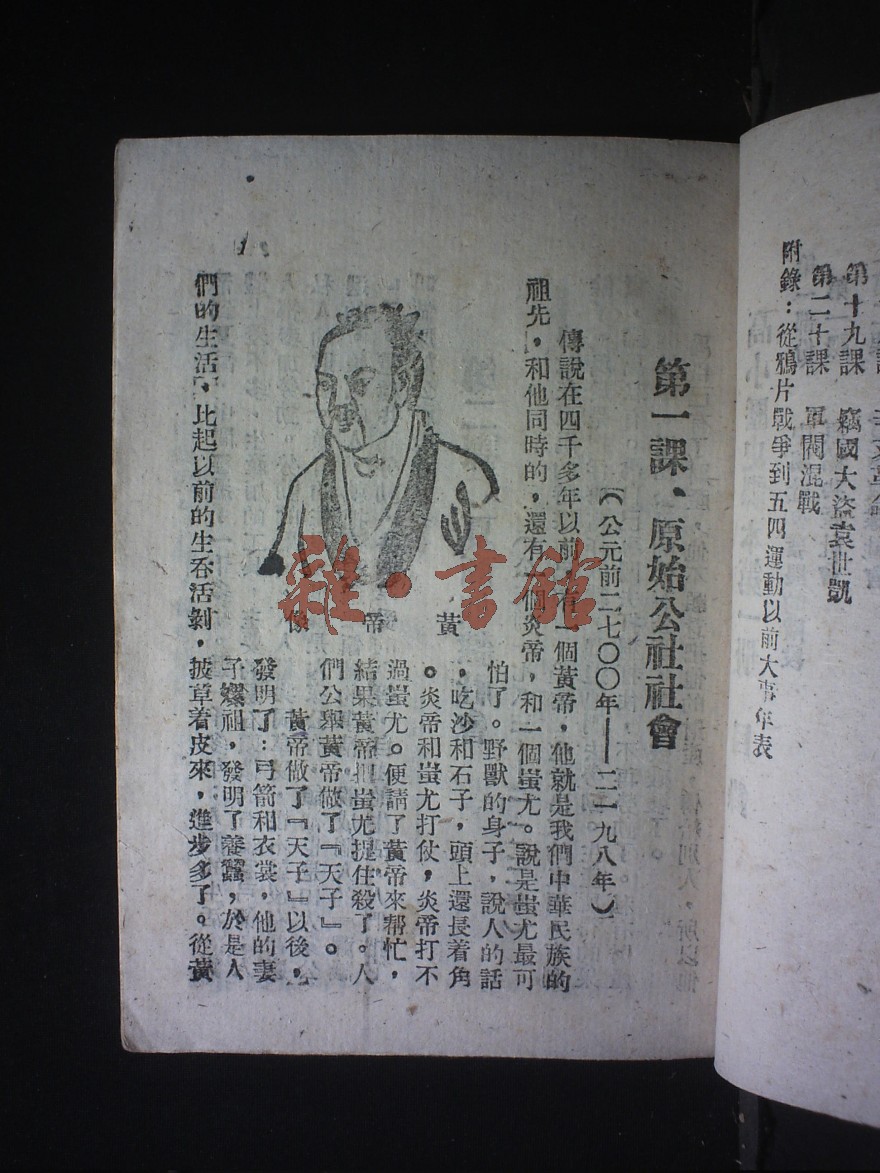 第十九課　竊國大盜袁世凱
第二十課　軍閥混戰
附錄：從鴉片戰爭到五四運動以前大事年表
第一課、原始公社社會
（公元前二七〇〇年——二一九八年）
傳說在四千多年以前，有一個黃帝，他就是我們中華民族的
祖先，和他同時的，還有一個炎帝，和一個蚩尤。說是蚩尤最可
怕了。野獸的身子，說人的話
，吃沙和石子，頭上還長着角
。炎帝和蚩尤打仗，炎帝打不
過蚩尤。便請了黃帝來帮忙，
結果黃帝把蚩尤捉住殺了。人
們公舉黃帝做了『天子』。
黃帝做了『天子』以後，
發明了：弓箭和衣裳，他的妻
子嫘祖，發明了養蠶，於是人
們的生活，比起以前的生吞活剝，披草着皮來，進步多了。從黃
黃帝像
1
雜·書館